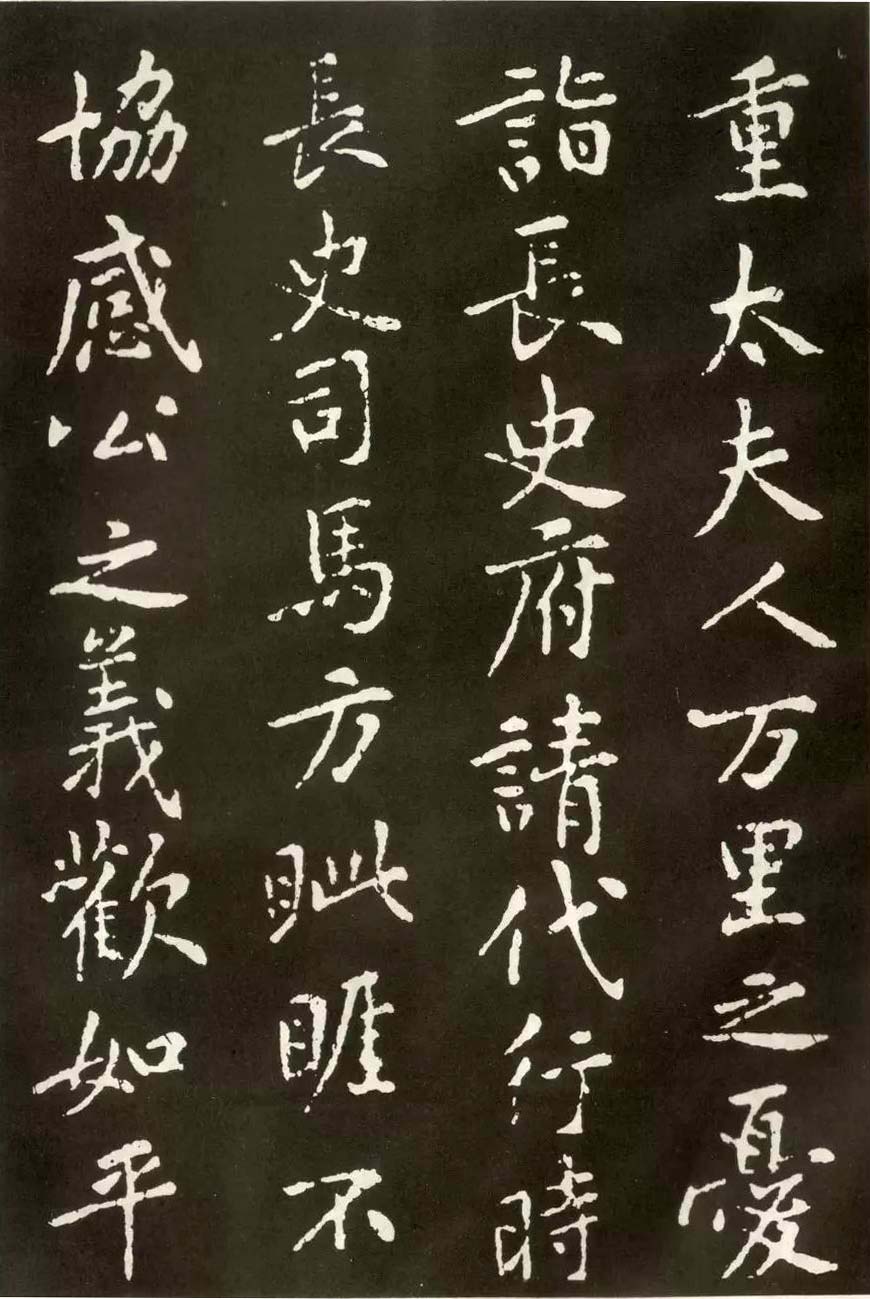 重太夫人万里之憂
詣長史府請代行時
長史司馬方眦睚不
協感公之義歡如平